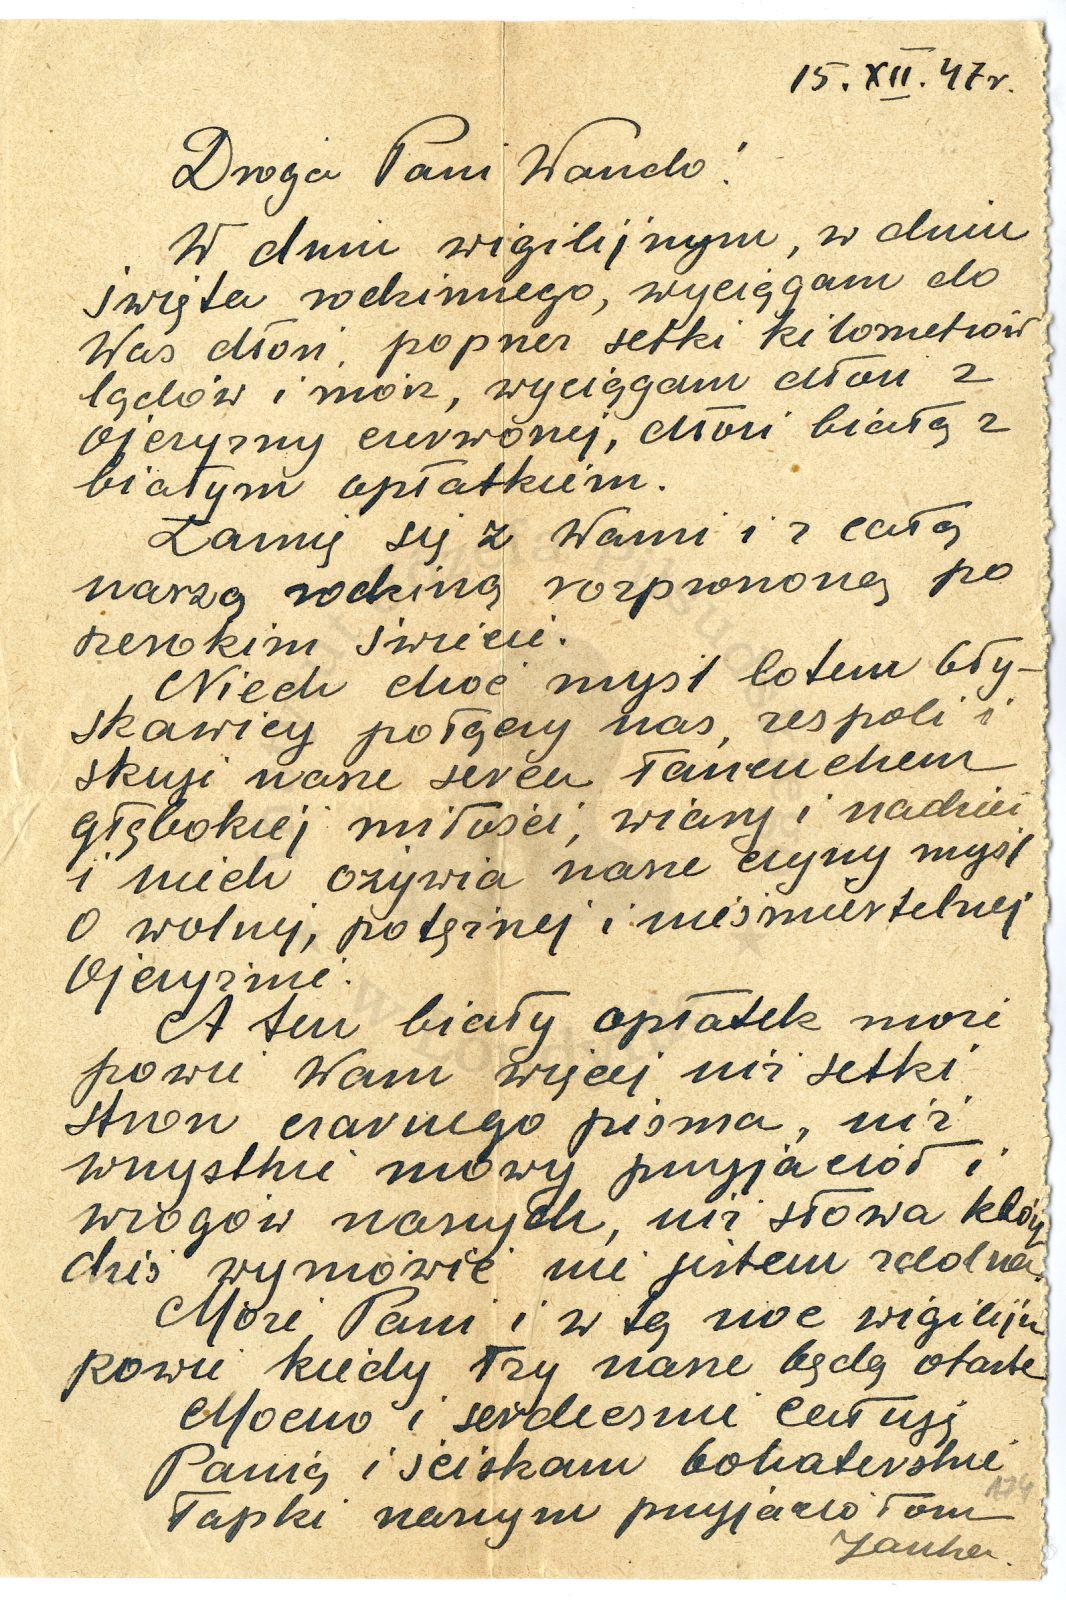 15.XII.47r.
Droga Pani Wando!
W dniu wigilijnym, w dniu
święta rodzinnego, wyciągam do
Was dłoń, poprzez setki kilometrów
lądów i mórz, wyciągam dłoń z
Ojczyzny czerwonej, dłoń białą z
białym opłatkiem.
Łamię się z Wami i z całą
naszą rodziną rozproszoną po
szerokim świecie.
Niech choć myśl lotem bły-
skawicy połączy nas, zespoli i
skuje nasze serca łańcuchem
głębokiej miłości, wiary i nadziei
i niech ożywia nasze czyny myśl
o wolnej, potężnej i nieśmiertelnej
Ojczyźnie.
A ten biały opłatek może
powie Wam więcej niż setki
stron czarnego pisma, niż
wszystkie mowy przyjaciół i
wrogów naszych, niż słowa któ
dziś wymówić nie jestem zdolna.
Może Pani i w tą noc wigilij
powie kiedy łzy nasze będą otarte
Mocno i serdecznie całuję
Panią i ściskam bohaterskie
łapki naszym przyjaciołom
Janka.
174